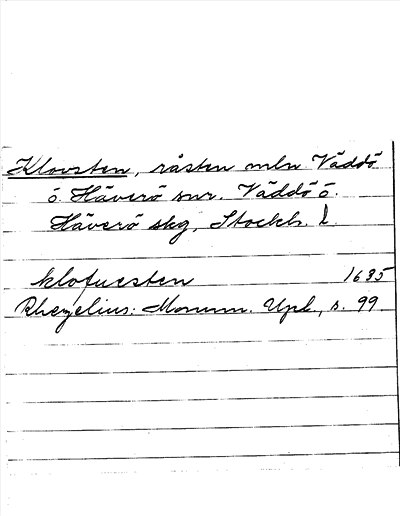 Klovsten, råsten mln Väddö
o. Häverö snr. Väddö o.
Häverö skg, Stockh. l.
klofuesten 1635
Rhezelius: Monum. Upl., s. 99